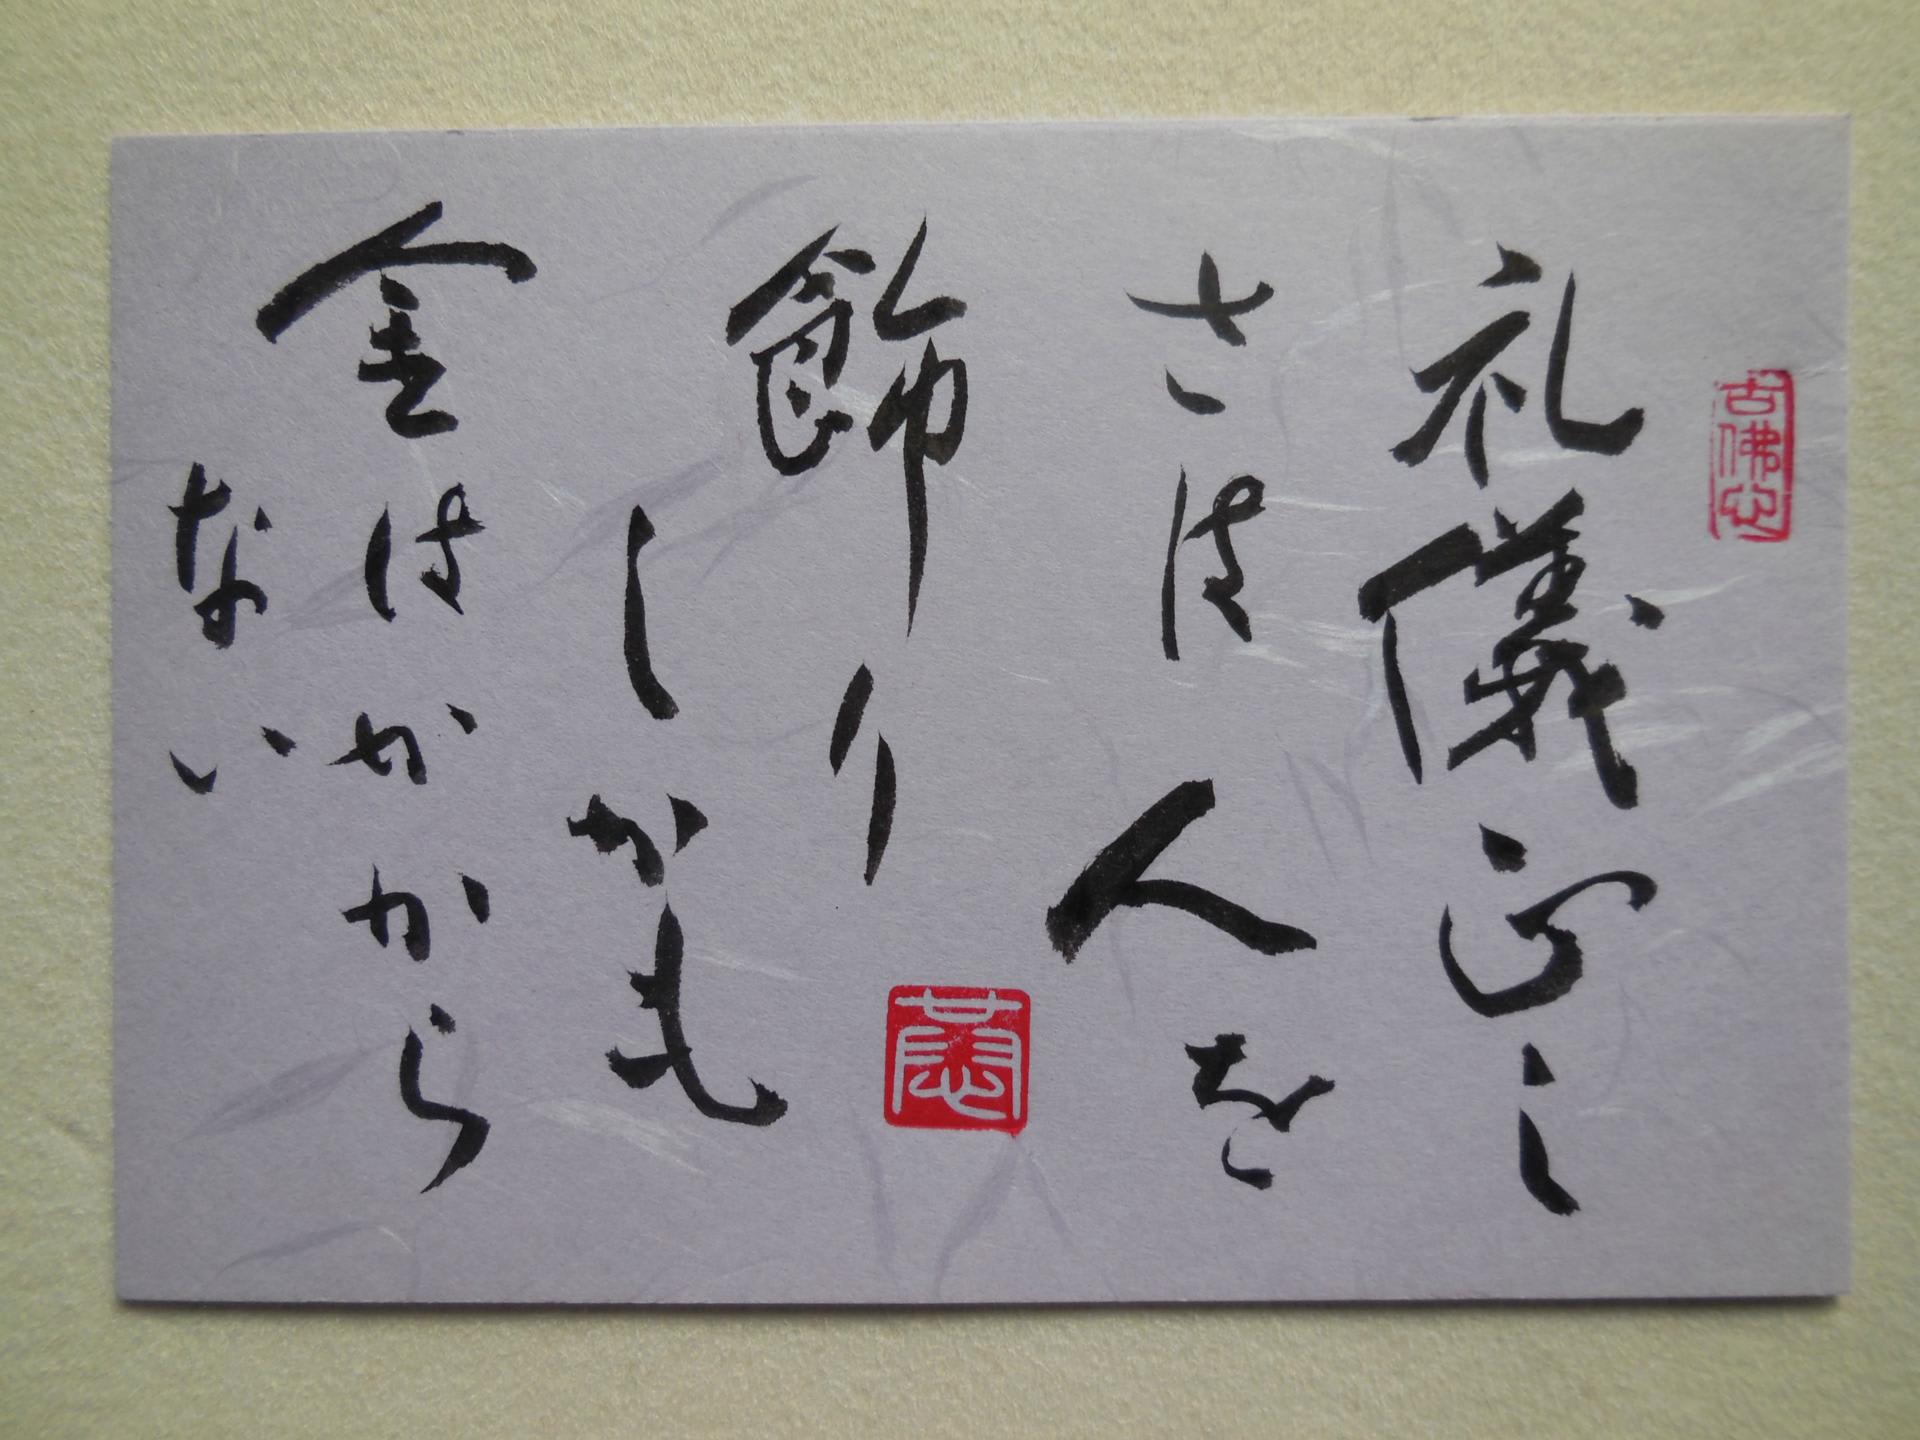 古佛心
礼儀正し
さは人を
飾り
しかも
金はかから
ない